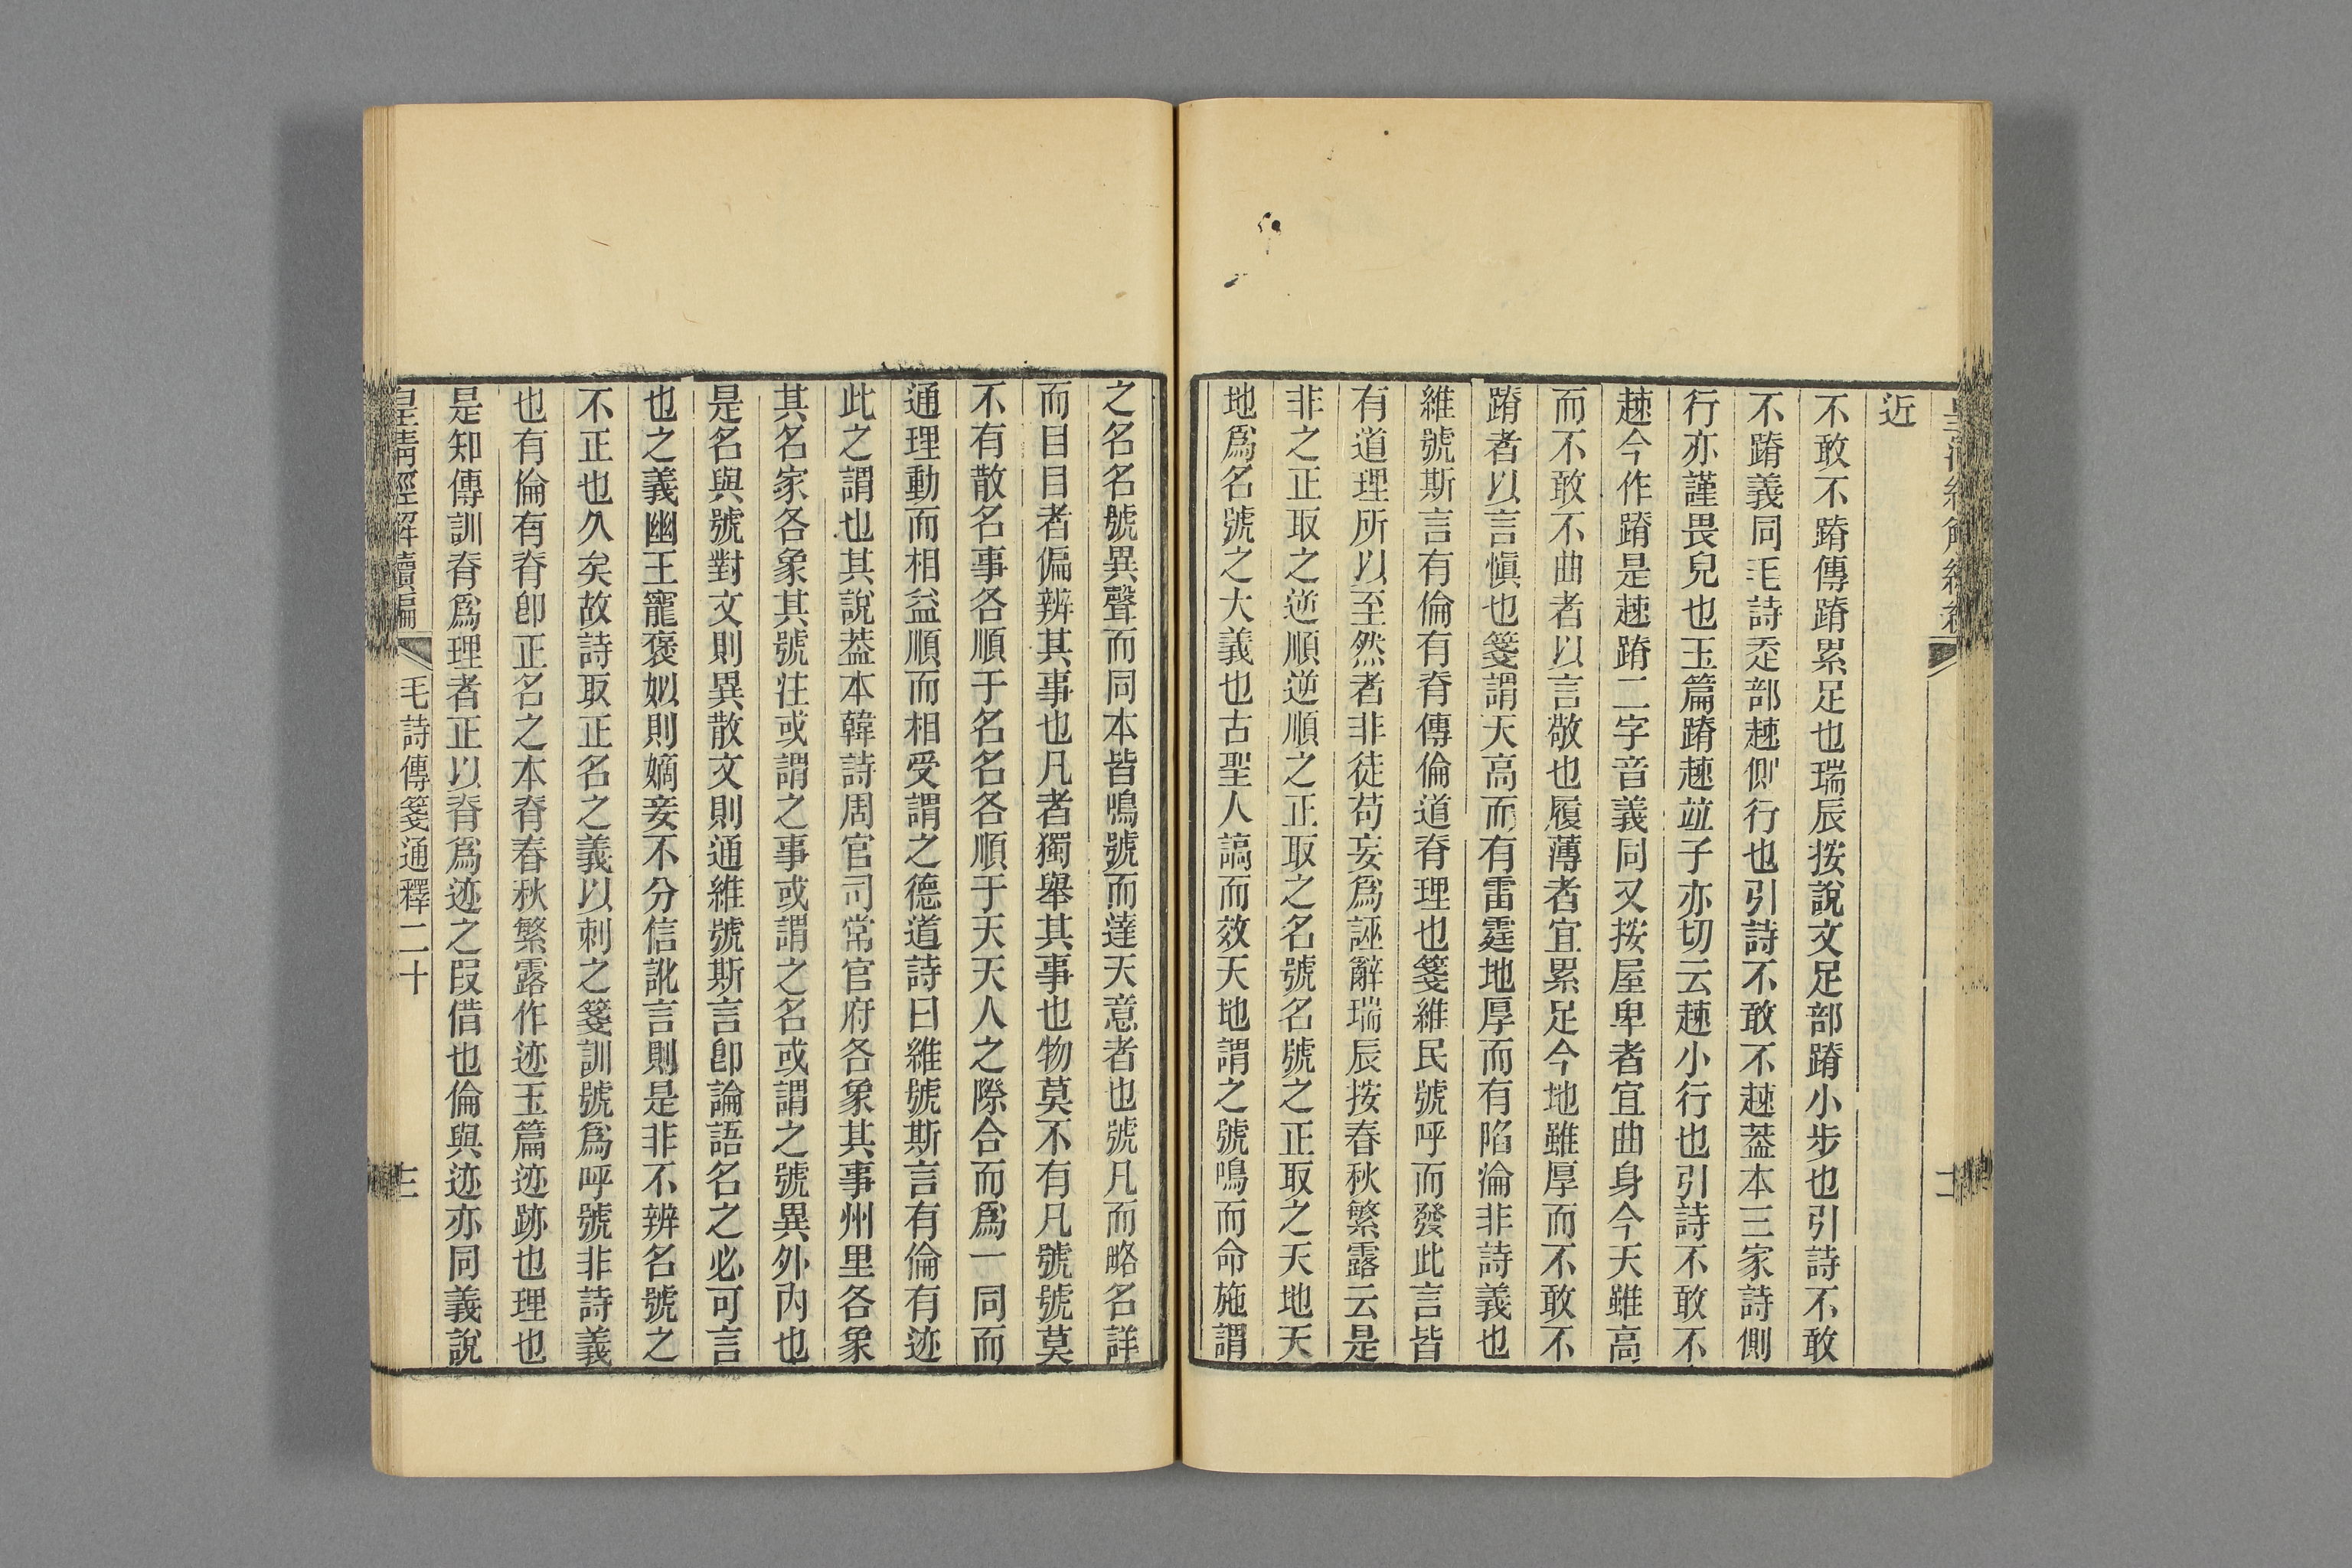 近
不敢不蹐傳蹐累足也瑞辰按說文足部蹐小步也引詩不敢
不蹐義同毛詩走部趚側行也引詩不敢不趚葢本三家詩側
行亦謹畏皃也玉篇蹐趚竝子亦切云趚小行也引詩不敢不
趚今作蹐是趚蹐二字音義同又按屋卑者宜曲身今天雖高
而不敢不曲者以言敬也履薄者宜累足今地雖厚而不敢不
蹐者以言愼也箋謂天高而有雷霆地厚而有陷淪非詩義也
維號斯言有倫有脊傳倫道脊理也箋維民號呼而發此言皆
有道理所以至然者非徒苟妄爲誣辭瑞辰按春秋繁露云是
非之正取之逆順逆順之正取之名號名號之正取之天地天
地爲名號之大義也古聖人謞而效天地謂之號鳴而命施謂
之名名號異聲而同本皆鳴號而達天意者也號凡而略名詳
而目目者偏辨其事也凡者獨舉其事也物莫不有凡號號莫
不有散名事各順于名名各順于天天人之際合而爲一同而
通理動而相益順而相受謂之德道詩曰維號斯言有倫有迹
此之謂也其說葢本韓詩周官司常官府各象其事州里各象
其名家各象其號注或謂之事或謂之名或謂之號異外內也
是名與號對文則異散文則通維號斯言卽論語名之必可言
也之義幽王寵褒姒則嫡妾不分信訛言則是非不辨名號之
不正也久矣故詩取正名之義以刺之箋訓號爲呼號非詩義
也有倫有脊卽正名之本脊春秋繁露作迹玉篇迹跡也理也
是知傳訓脊爲理者正以脊爲迹之叚借也倫與迹亦同義說
皇淸經解續編 毛詩傳箋通釋二十